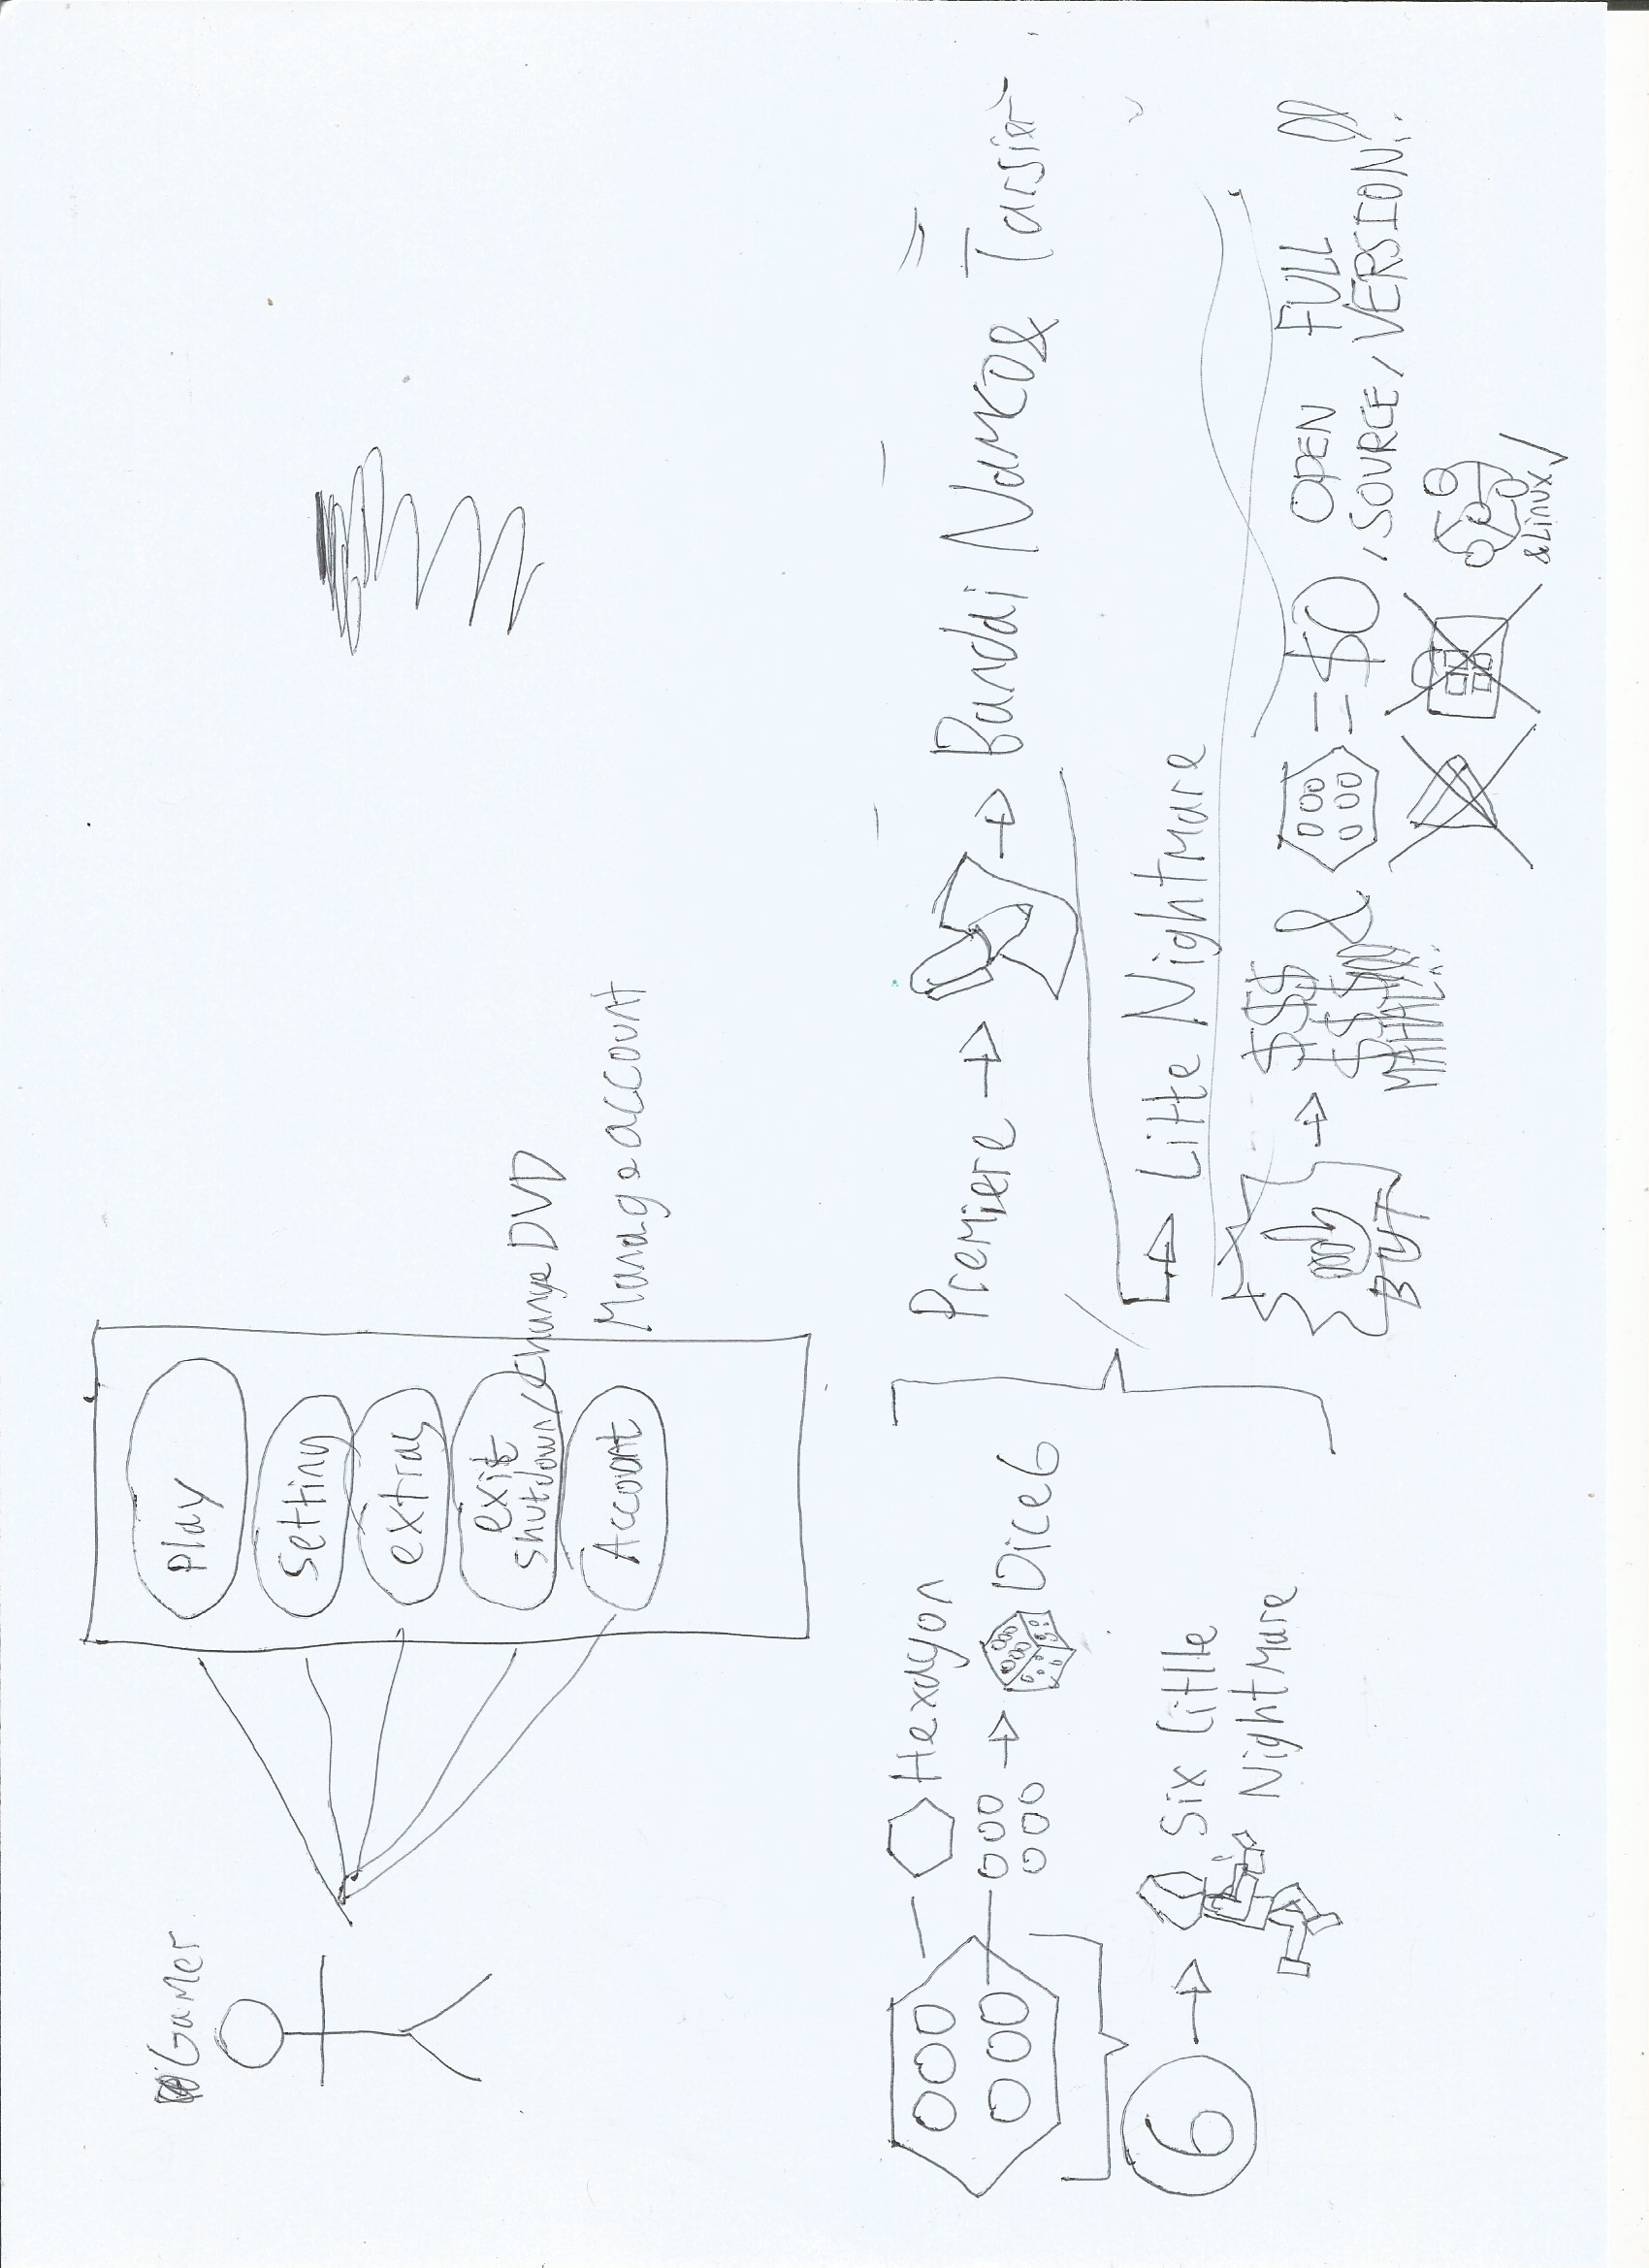 Gamer
Play
Setting
extras
exit
Shutdown/Change DVD
Account
Manage account
Hexagon
Dice 6
6
Six Litlle
Nightmare
Premiere
Bandai Namco & Tarsier
Litte Nightmare
BUT
$$$
$$$
MAHAL!!
&
= $0, OPEN SOURCE, FULL VERSION!!
& Linux